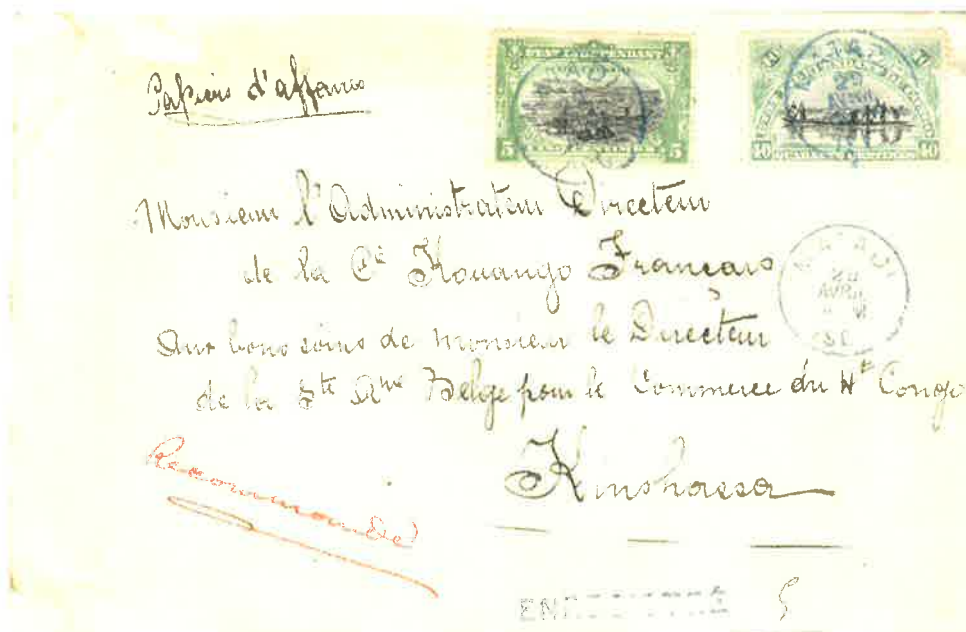 Papiers d'affaires
ETAT INDEPENDANT
5 5
40 40
Monsieur l'Administrateur Directeur
de la Cie Kouango Français
Aux bons soins de monsieur le Directeur
de la Sté Ame Belge pour le Commerce du Ht Congo
Kinshassa
Recommandé
AVRIL